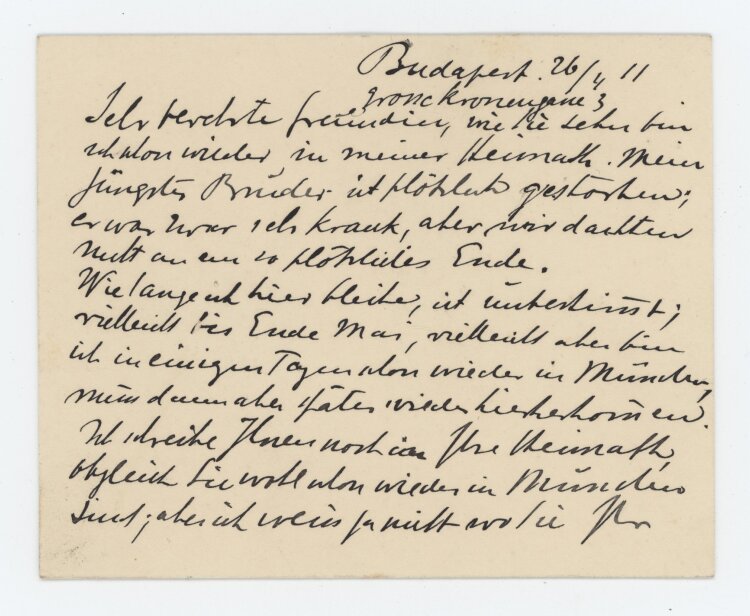 Budapest. 26/4 11
Grosse Kronengasse 3
Sehr verehrte Freundin, wie Sie sehen bin
ich schon wieder in meiner Heimath. Mein
jüngster Bruder ist plötzlich gestorben;
er war zwar sehr krank, aber wir dachten
nicht an ein so plötzliches Ende.
Wie lange ich hier bleibe, ist unbestimmt;
vielleicht bis Ende Mai, vielleicht aber bin
ich in einigen Tagen schon wieder in München,
muss dann aber später wieder hierherkommen.
Ich schreibe Ihnen noch in Ihre Heimath,
obgleich Sie wohl schon wieder in München
sind; aber ich weiss ja nicht wo Sie Ihr